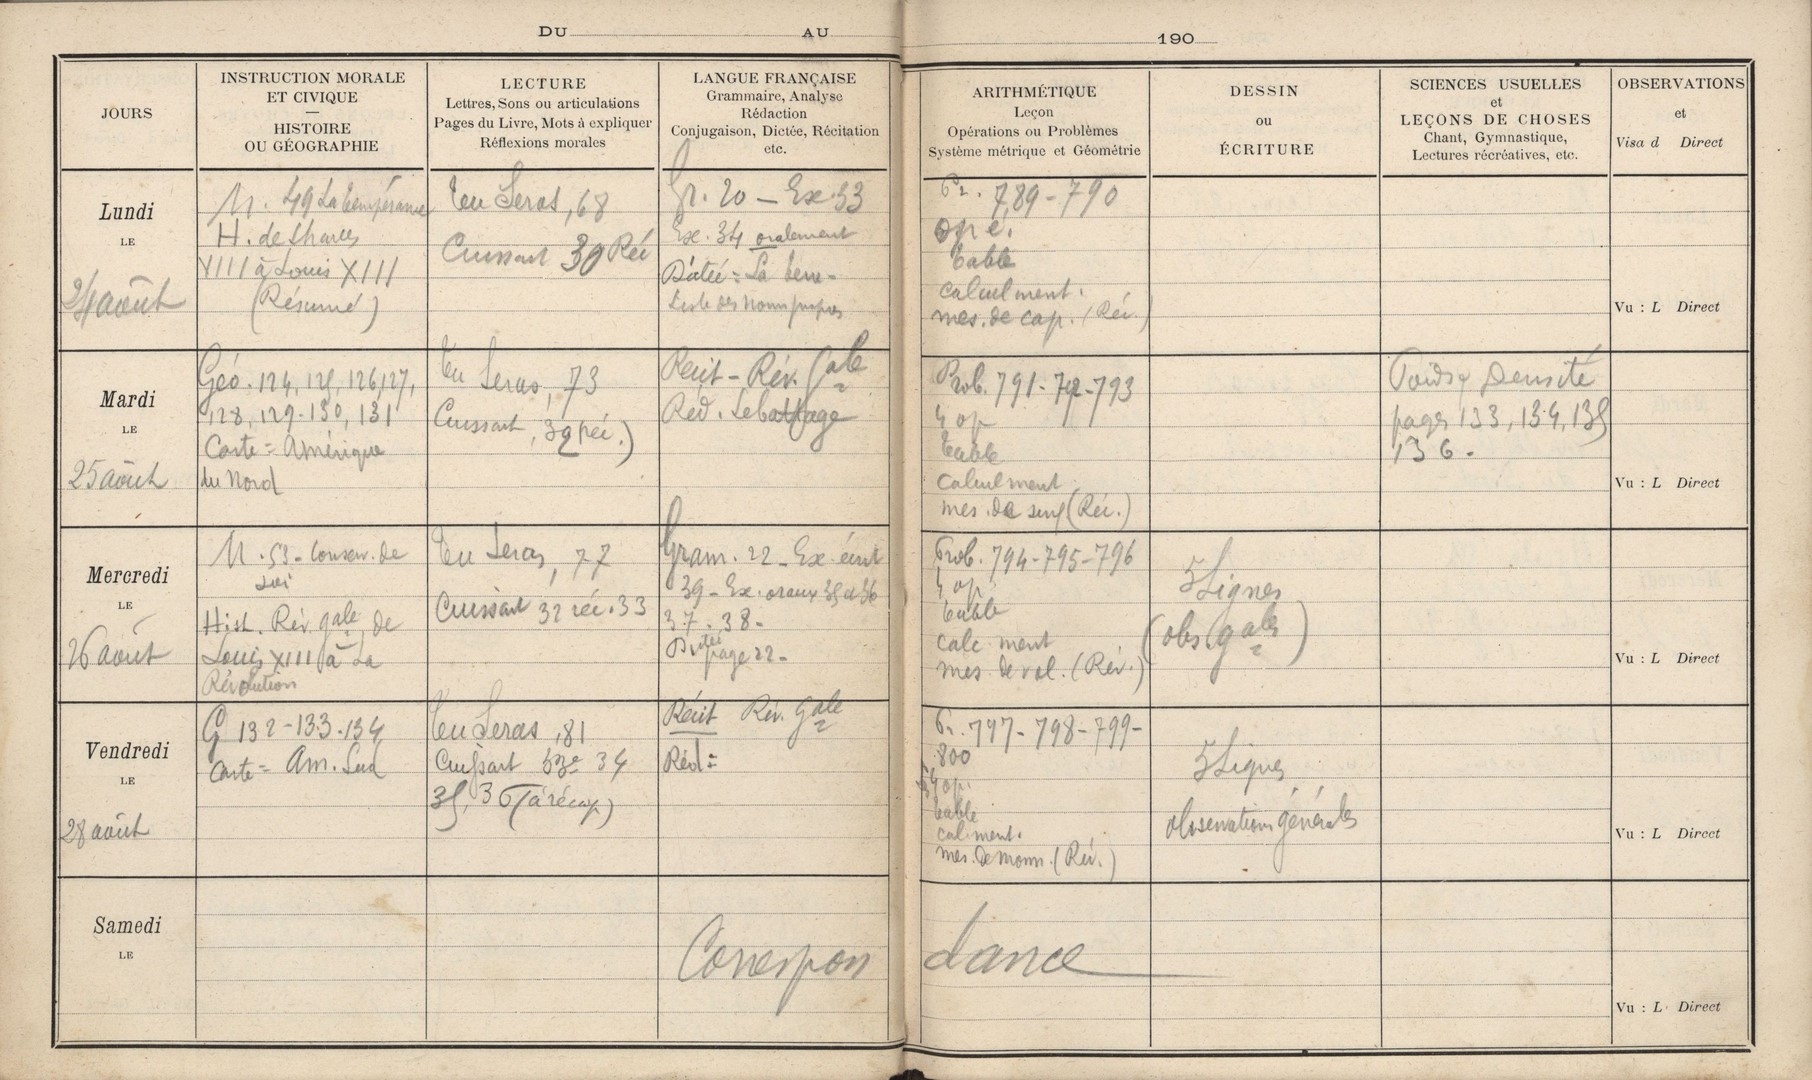 DU AU 190
JOURS
INSTRUCTION MORALE
ET CIVIQUE
—
HISTOIRE
OU GÉOGRAPHIE
LECTURE
Lettres, Sons ou articulations
Pages du Livre, Mots à expliquer
Réflexions morales
LANGUE FRANÇAISE
Grammaire, Analyse
Rédaction
Conjugaison, Dictée, Récitation
etc.
ARITHMÉTIQUE
Leçon
Opérations ou Problèmes
Système métrique et Géométrie
DESSIN
ou
ÉCRITURE
SCIENCES USUELLES
et
LEÇONS DE CHOSES
Chant, Gymnastique,
Lectures récréatives, etc.
OBSERVATIONS
et
Visa d Direct
Lundi
LE
24 août
M. 49 La tempérance
H. de Charles
VIII à Louis XIII
(Résumé)
Tu Seras, 68
Cuissart 30 Réc
Gr. 20 – Ex. 33
Ex. 34 oralement
Dictée =
Liste des Noms propres
Pr. 789-790
opé.
table
calcul ment.
mes. de cap. (Rév.)
Vu : L Direct
Mardi
LE
25 août
Géo. 124, 125, 126, 127,
128, 129-130, 131
Carte = Amérique
du Nord
Tu Seras, 73
Cuissart, 32 réc.)
Récit – Rév. Gale
Réd. Le battage
Prob. 791-792-793
4 op
table
calcul ment
mes. de surf (Rév.)
Poids & Densité
pages 133, 134, 135
136.
Vu : L Direct
Mercredi
LE
26 août
M. 53 – Conserv. de
soi
Hist. Rév. gale de
Louis XIII à La
Révolution
Tu Seras, 77
Cuissart 32 réc. 33
Gram. 22 – Ex. écrit
39 – Ex. oraux 35 et 36
37. 38.
Dictée
page 22 –
Prob. 794-795-796
4 op
table
calc ment
mes de vol. (Rév.)
5 Lignes
(obs gales)
Vu : L Direct
Vendredi
LE
28 août
G 132-133-134
Carte = Am. Sud
Tu Seras, 81
Cuissart 34
35, 36 (à récap)
Récit Rév. gale
Réd =
Pr. 797-798-799-
800
4 op.
table
cal. ment.
mes. de monn. (Rév.)
5 Lignes
observations générales
Vu : L Direct
Samedi
LE
Correspondance
Vu : L Direct